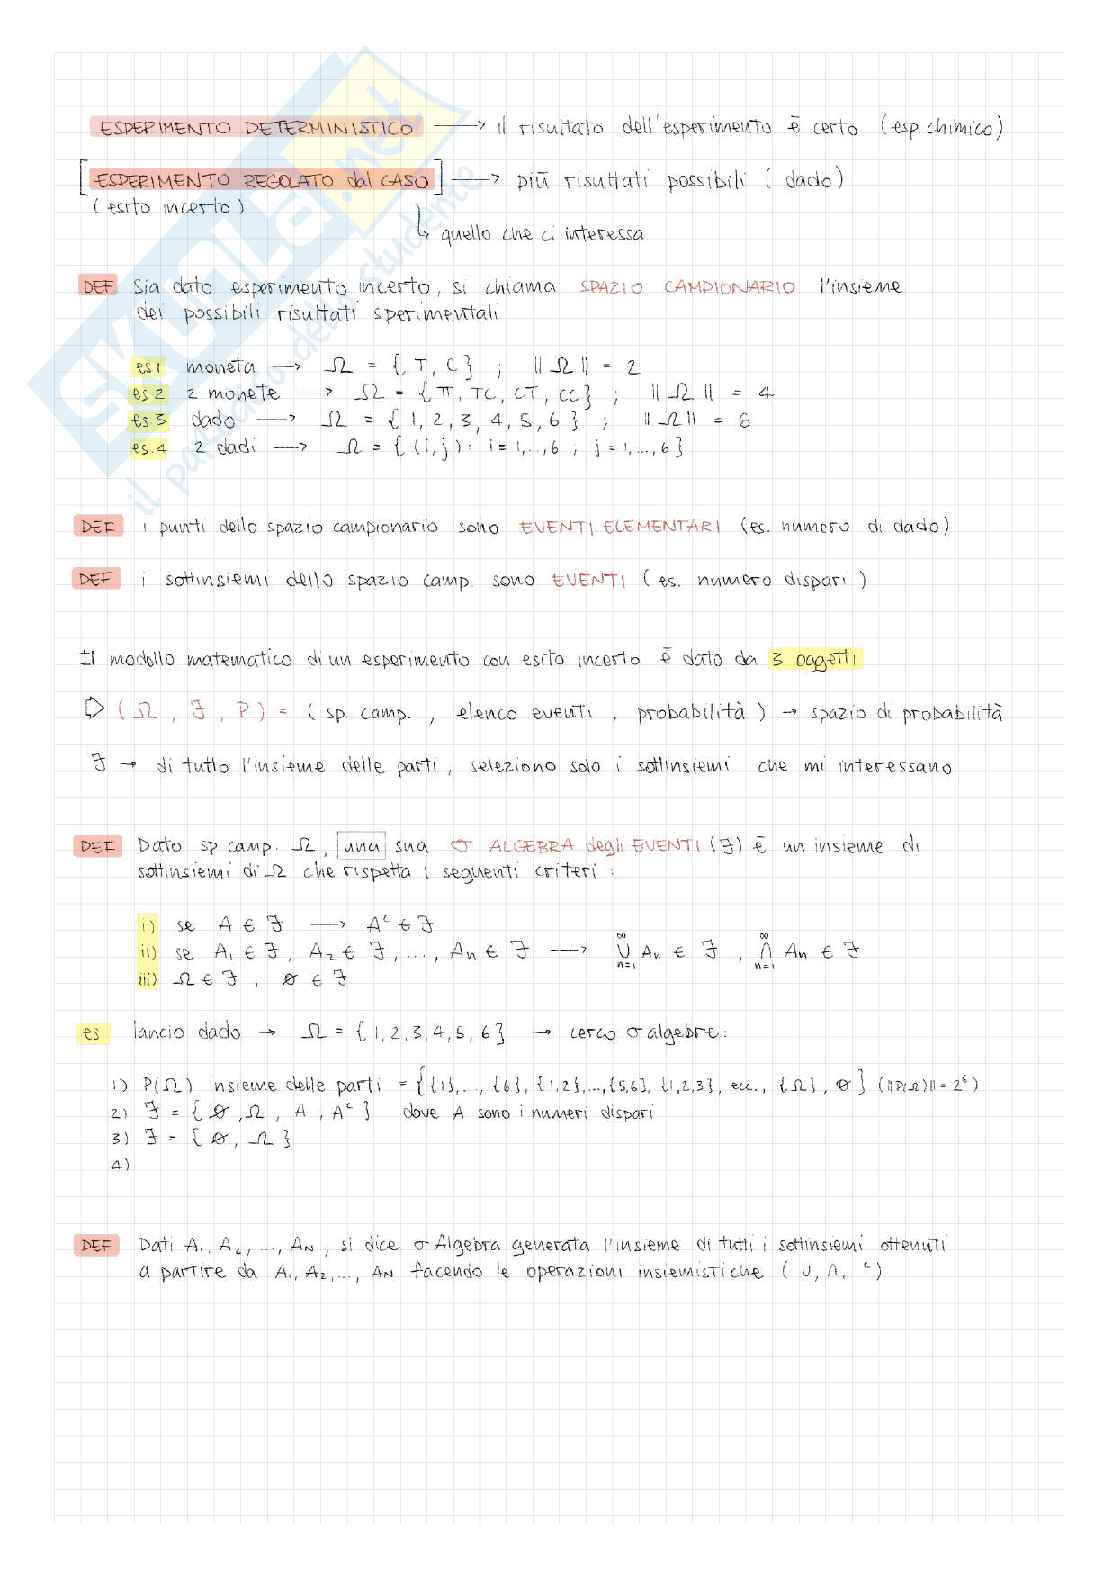 ESPERIMENTO DETERMINISTICO → il risultato dell'esperimento è certo (esp. chimico)
[ESPERIMENTO REGOLATO dal CASO] → più risultati possibili (dado)
(esito incerto)
↳ quello che ci interessa
DEF Sia dato esperimento incerto, si chiama SPAZIO CAMPIONARIO l'insieme
dei possibili risultati sperimentali
es1 moneta → Ω = {T, C} ; ||Ω|| = 2
es2 2 monete → Ω = {TT, TC, CT, CC} ; ||Ω|| = 4
es3 dado → Ω = {1, 2, 3, 4, 5, 6} ; ||Ω|| = 6
es.4 2 dadi → Ω = {(i,j): i=1,..,6 ; j=1,...,6}
DEF i punti dello spazio campionario sono EVENTI ELEMENTARI (es. numero di dado)
DEF i sottinsiemi dello spazio camp. sono EVENTI (es. numero dispari)
Il modello matematico di un esperimento con esito incerto è dato da 3 oggetti
⇨ (Ω, F, P) = (sp camp., elenco eventi, probabilità) → spazio di probabilità
F → di tutto l'insieme delle parti, seleziono solo i sottinsiemi che mi interessano
DEF Dato sp camp. Ω, una sua σ ALGEBRA degli EVENTI (F) è un insieme di
sottinsiemi di Ω che rispetta i seguenti criteri:
i) se A ∈ F → Aᶜ ∈ F
ii) se A₁ ∈ F, A₂ ∈ F, ..., An ∈ F → ∞ ∪ n=1 An ∈ F, ∞ ∩ n=1 An ∈ F
iii) Ω ∈ F, ∅ ∈ F
es lancio dado → Ω = {1,2,3,4,5,6} → cerco σ algebre:
1) P(Ω) insieme delle parti = {{1},.., {6}, {1,2},...,{5,6}, {1,2,3}, ecc., {Ω}, ∅} (||P(Ω)|| = 2⁶)
2) F = {∅, Ω, A, Aᶜ} dove A sono i numeri dispari
3) F = {∅, Ω}
4)
DEF Dati A₁, A₂, ..., AN, si dice σ Algebra generata l'insieme di tutti i sottinsiemi ottenuti
a partire da A₁, A₂,..., AN facendo le operazioni insiemistiche (∪, ∩, ᶜ)
SKUOLA.net
il paradiso dello studente